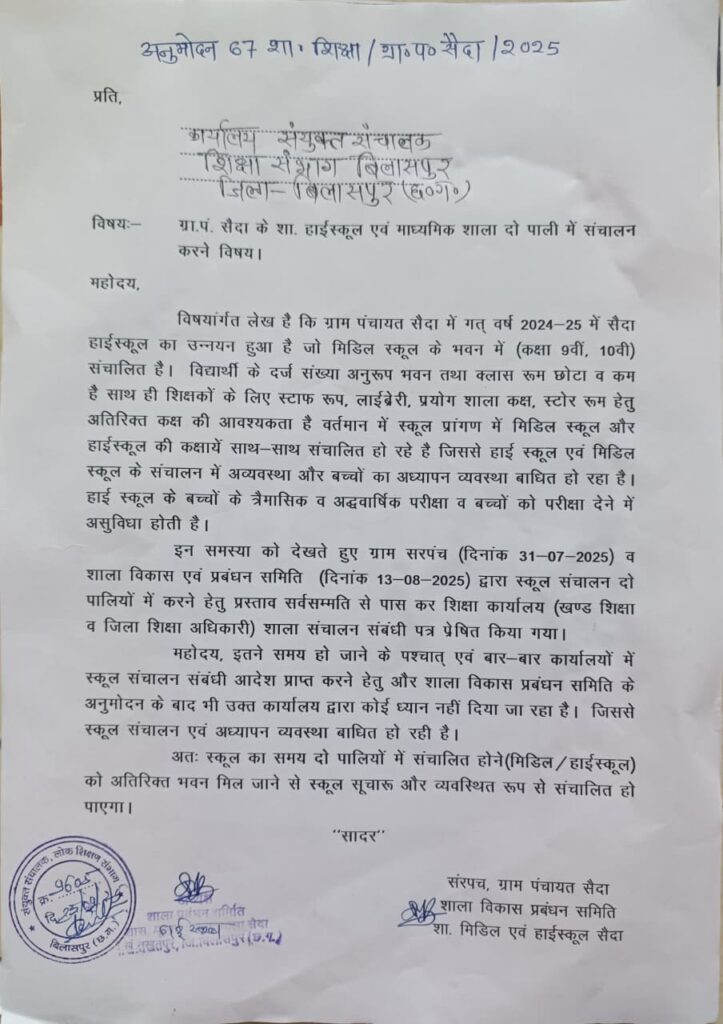 अनुमोदन 67 शा. शिक्षा / ग्रा०प० सैदा / 2025
प्रति,
कार्यालय संयुक्त संचालक
शिक्षा संभाग बिलासपुर
जिला- बिलासपुर (छ०ग०)
विषयः– ग्रा.पं. सैदा के शा. हाईस्कूल एवं माध्यमिक शाला दो पाली में संचालन
करने विषय।
महोदय,
विषयांर्गत लेख है कि ग्राम पंचायत सैदा में गत् वर्ष 2024–25 में सैदा
हाईस्कूल का उन्नयन हुआ है जो मिडिल स्कूल के भवन में (कक्षा 9वीं, 10वी)
संचालित है। विद्यार्थी के दर्ज संख्या अनुरूप भवन तथा क्लास रूम छोटा व कम
है साथ ही शिक्षकों के लिए स्टाफ रूप, लाईब्रेरी, प्रयोग शाला कक्ष, स्टोर रूम हेतु
अतिरिक्त कक्ष की आवश्यकता है वर्तमान में स्कूल प्रांगण में मिडिल स्कूल और
हाईस्कूल की कक्षायें साथ–साथ संचालित हो रहे है जिससे हाई स्कूल एवं मिडिल
स्कूल के संचालन में अव्यवस्था और बच्चों का अध्यापन व्यवस्था बाधित हो रहा है।
हाई स्कूल के बच्चों के त्रैमासिक व अद्धवार्षिक परीक्षा व बच्चों को परीक्षा देने में
असुविधा होती है।
इन समस्या को देखते हुए ग्राम सरपंच (दिनांक 31–07–2025) व
शाला विकास एवं प्रबंधन समिति (दिनांक 13–08–2025) द्वारा स्कूल संचालन दो
पालियों में करने हेतु प्रस्ताव सर्वसम्मति से पास कर शिक्षा कार्यालय (खण्ड शिक्षा
व जिला शिक्षा अधिकारी) शाला संचालन संबंधी पत्र प्रेषित किया गया।
महोदय, इतने समय हो जाने के पश्चात् एवं बार–बार कार्यालयों में
स्कूल संचालन संबंधी आदेश प्राप्त करने हेतु और शाला विकास प्रबंधन समिति के
अनुमोदन के बाद भी उक्त कार्यालय द्वारा कोई ध्यान नहीं दिया जा रहा है। जिससे
स्कूल संचालन एवं अध्यापन व्यवस्था बाधित हो रही है।
अतः स्कूल का समय दो पालियों में संचालित होने(मिडिल/हाईस्कूल)
को अतिरिक्त भवन मिल जाने से स्कूल सूचारू और व्यवस्थित रूप से संचालित हो
पाएगा।
"सादर"
संरपच, ग्राम पंचायत सैदा
शाला विकास प्रबंधन समिति
शा. मिडिल एवं हाईस्कूल सैदा
शाला प्रबंधन समिति
सैदा
तखतपुर, जि.बिलासपुर (छ.ग.)
संयुक्त संचालक, लोक शिक्षण संभाग
क्र. 9605
दि.
बिलासपुर (छ.ग.)